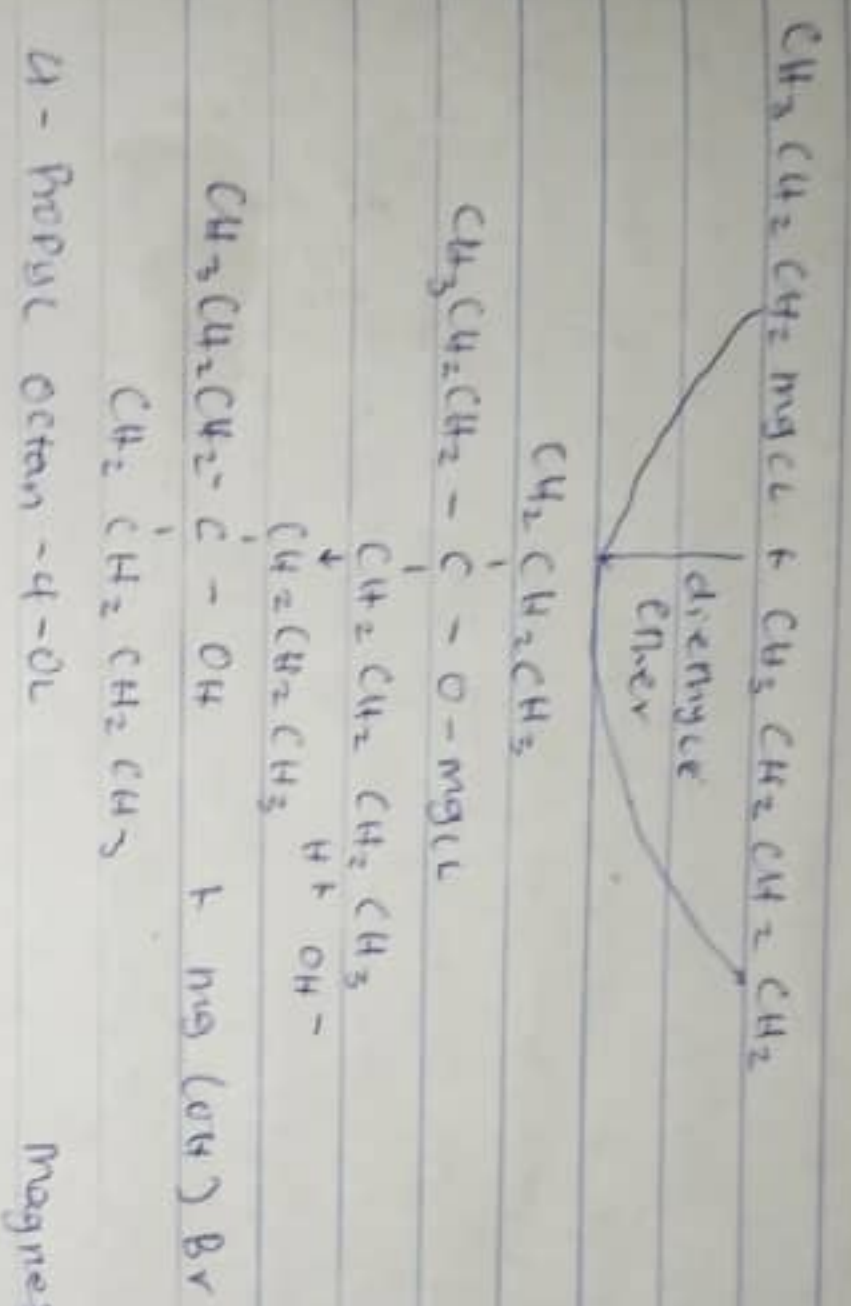 CH3 CH2 CH2 mgcl + CH3 CH2 CH2 CH2
diethyle
Ether
CH2 CH2CH3
CH3CH2CH2 - C - O - mgcl
CH2 CH2 CH2 CH3
H+ OH-
CH2CH2CH3
CH3CH2CH2 - C - OH + mg (OH) Br
CH2 CH2 CH2 CH3
4 - Propyl Octan - 4 - OL